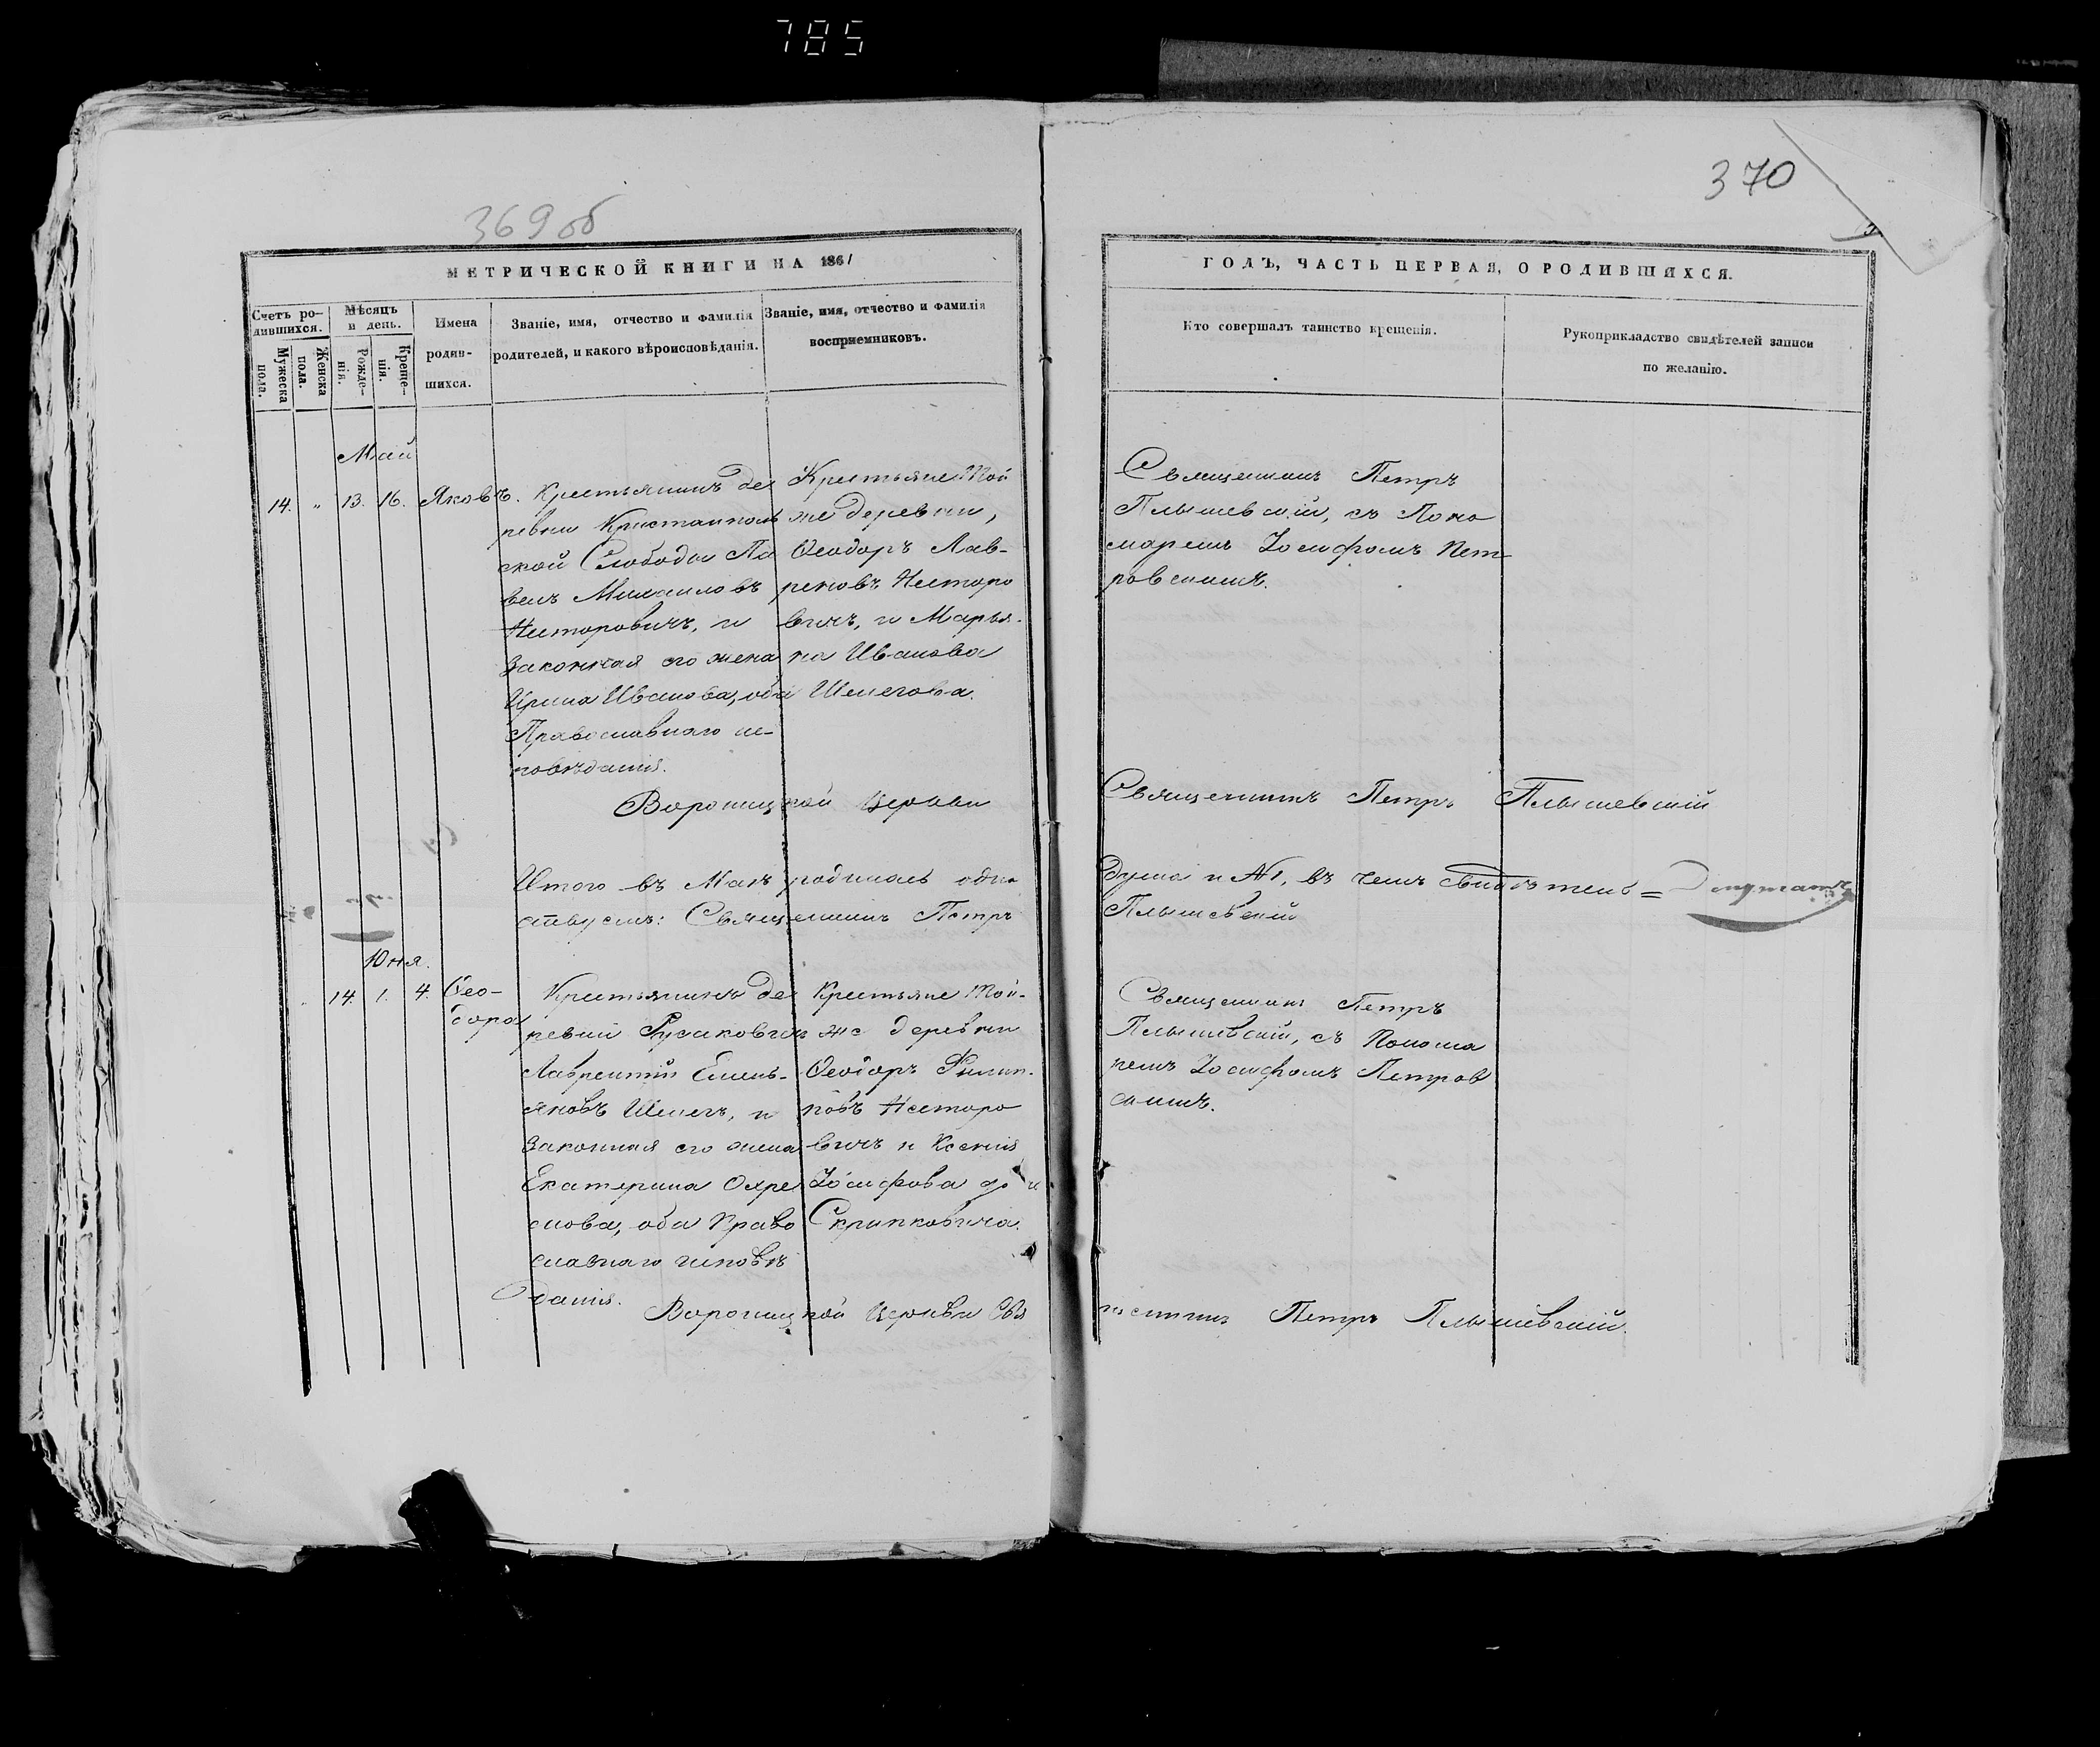 785
370
369 об
МЕТРИЧЕСКОЙ КНИГИ НА 1861
ГОДЪ, ЧАСТЬ ПЕРВАЯ, О РОДИВШИХСЯ.
Счетъ ро-
дившихся.
Мужеска
пола.
Женска
пола.
Мѣсяцъ
и день.
Рожде-
нія.
Креще-
нія.
Имена
родив-
шихся.
Званіе, имя, отчество и фамилія
родителей, и какого вѣроисповѣданія.
Званіе, имя, отчество и фамилія
воспріемниковъ.
Кто совершалъ таинство крещенія.
Рукоприкладство свидѣтелей записи
по желанію.
Май
14. " 13. 16. Яковъ.
Крестьянинъ де
ревни Кристаиполь
ской Слободы Па
велъ Михаиловъ
Несторовичъ, и
законная его жена
Ирина Иванова, оба
Православнаго ис-
повѣданія.
Крестьяне той
же деревни,
Ѳеодоръ Лав-
реновъ Несторо
вичъ, и Марья-
на Иванова
Шепегова.
Священникъ Петръ
Плышевскій, съ Поно
маремъ Іосифомъ Пет-
ровскимъ.
Вороницкой Церкви Священникъ Петръ Плышевскій
Итого въ Маѣ родилась одна душа и №1, въ чемъ свидѣтель= Депутатъ
Священникъ Петръ Плышевскій
Юня.
" 14. 1. 4. Ѳео-
дора
Крестьянинъ де
ревни Русаковичъ
Лаврентій Емель-
яновъ Шепегъ, и
законная его жена
Екатерина Охре
мова, оба Право
славнаго исповѣ
данія.
Крестьяне той-
же деревни
Ѳеодоръ Филип-
повъ Несторо
вичъ и Ксенія
Іосифова
Скрипковича.
Священникъ Петръ
Плышевскій, съ Понома
ремъ Іосифомъ Петров
скимъ.
Вороницкой Церкви Свя щенникъ Петръ Плышевскій.